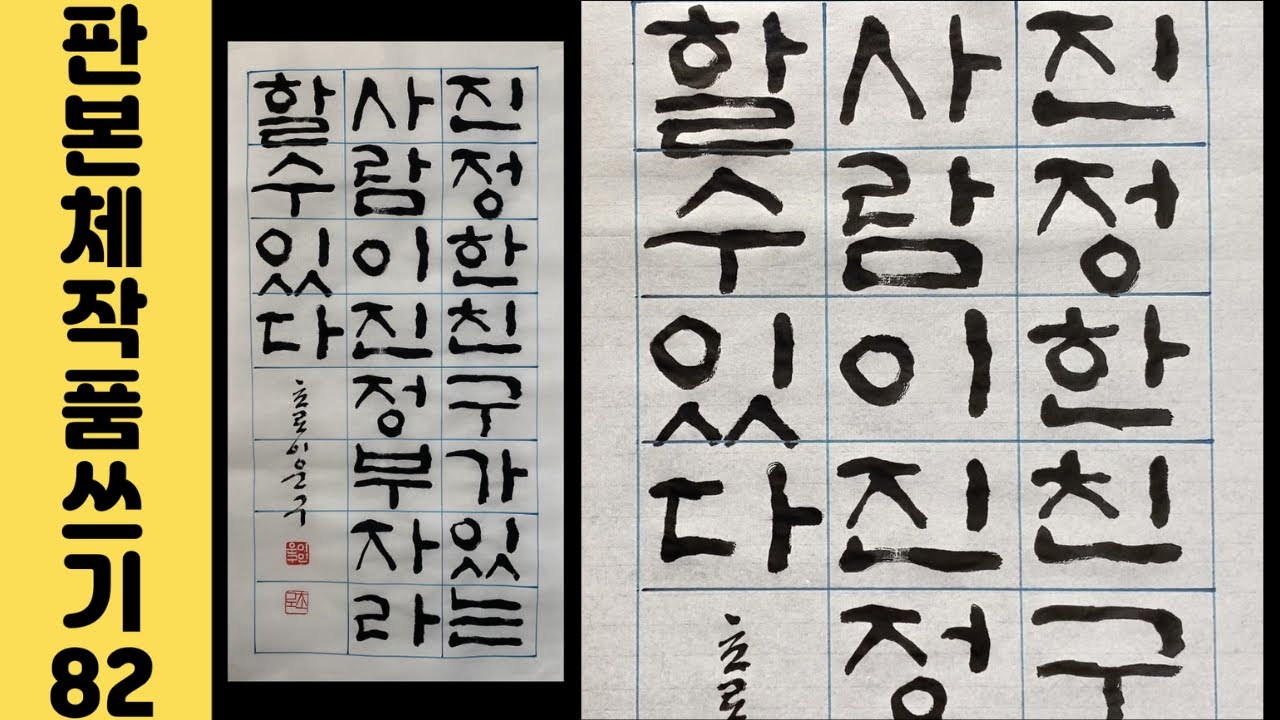 판본체작품쓰기82
진정한친구가있는
사람이진정부자라
할수있다
초로이운구
진정한친구
사람이진정
할수있다
초로